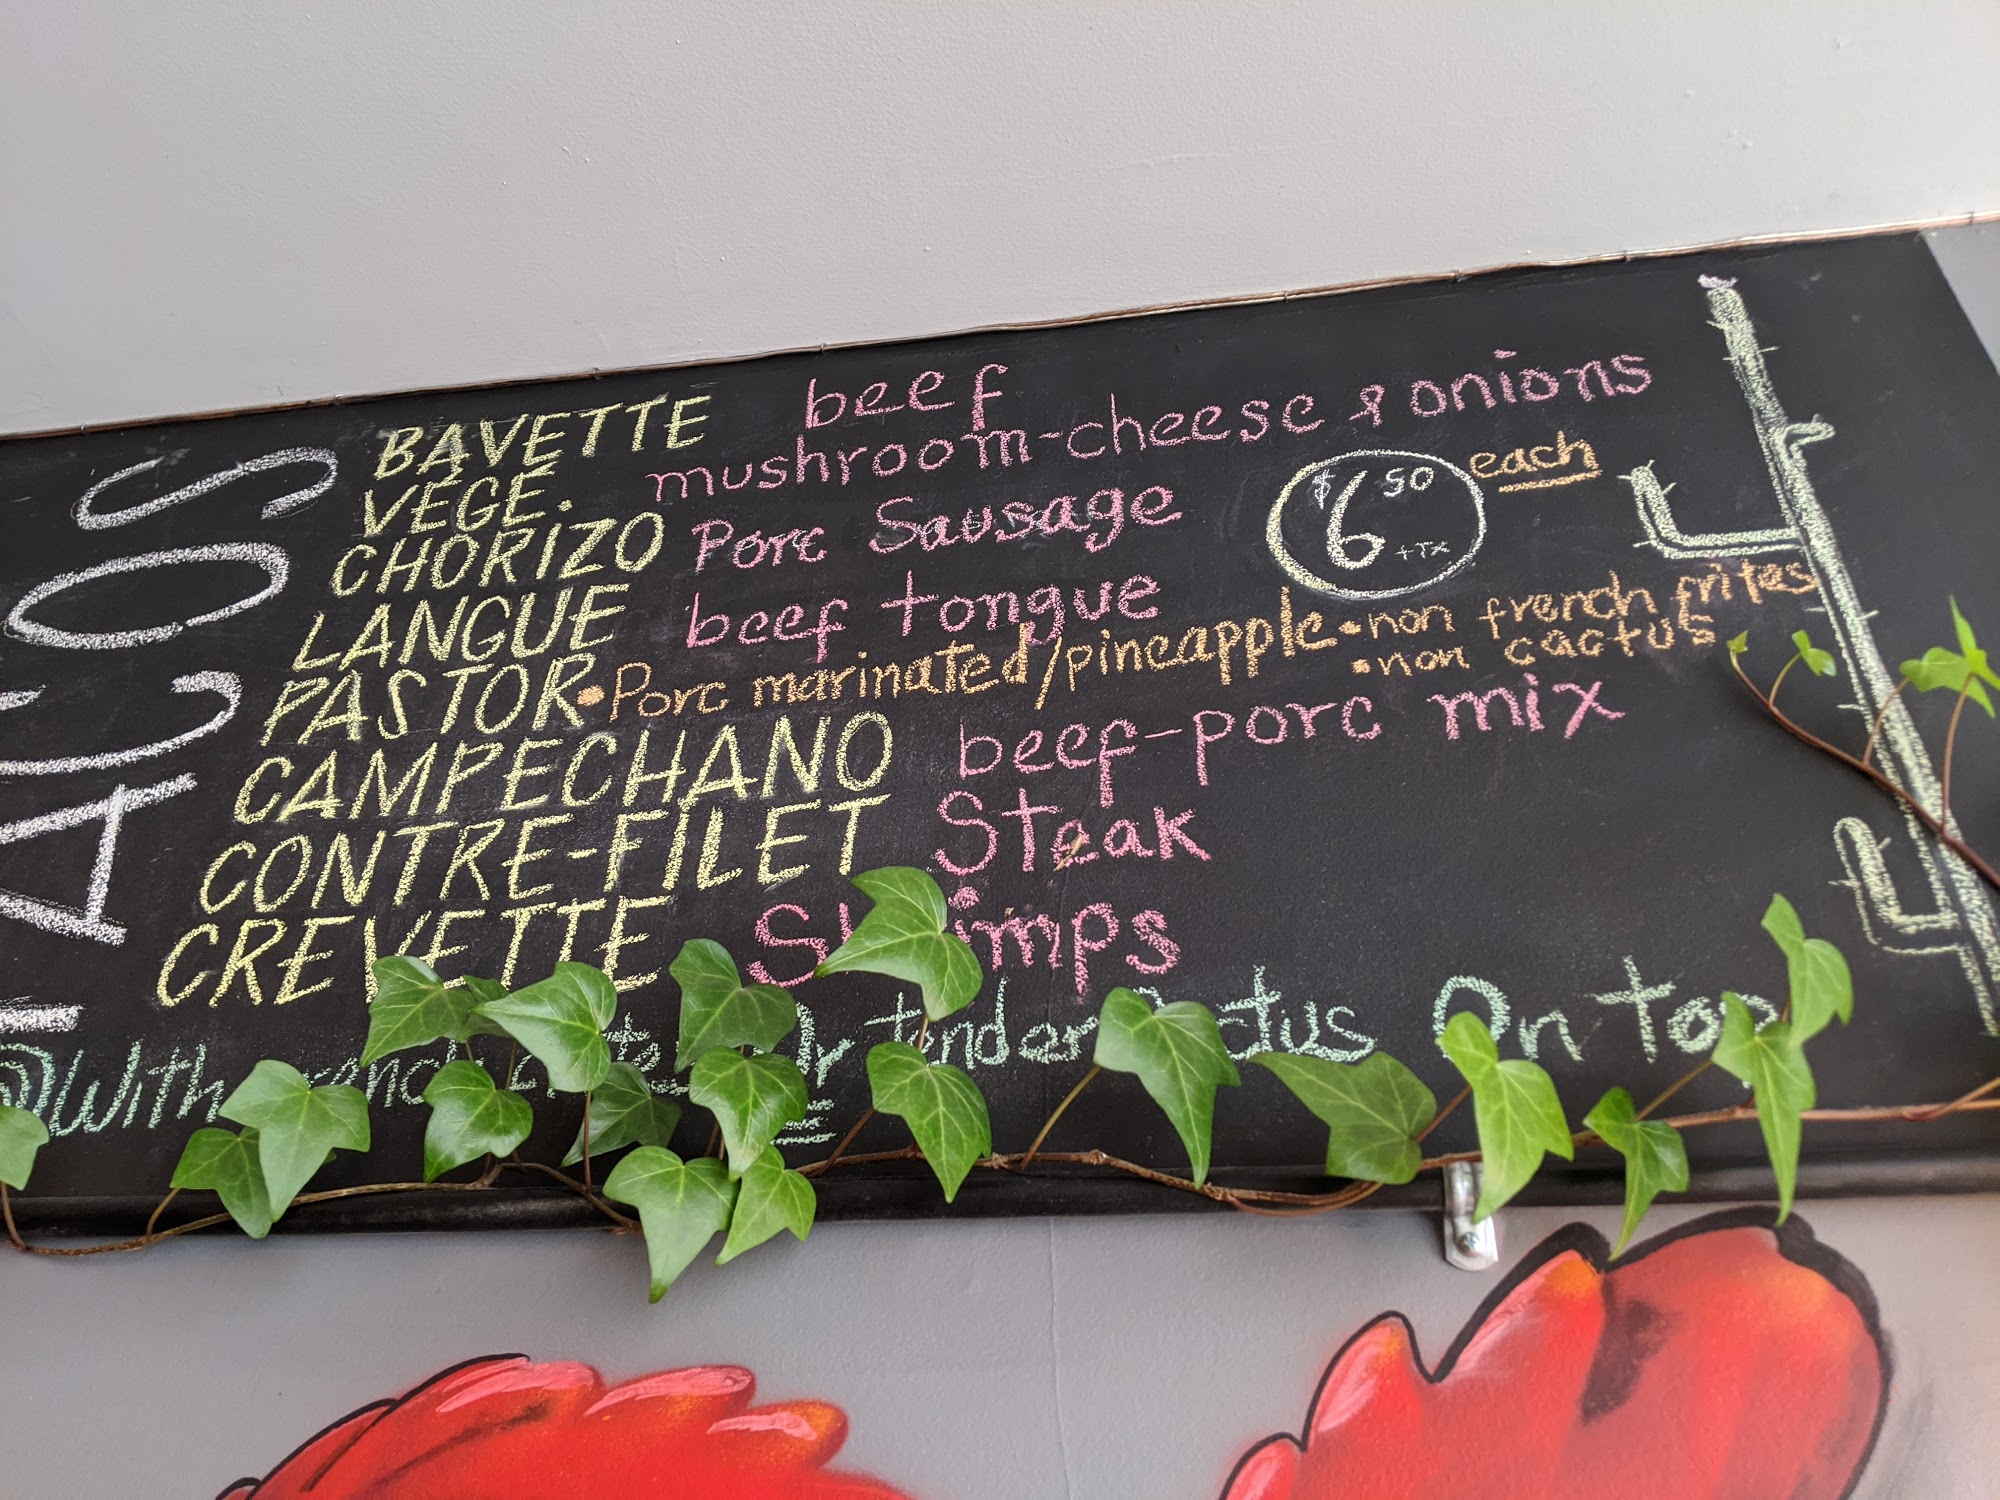 TACOS
BAVETTE beef
VÉGÉ. mushroom-cheese & onions
CHORIZO Porc Sausage
$6.50 +Tx each
LANGUE beef tongue
PASTOR • Porc marinated/pineapple • non french frites
• non cactus
CAMPECHANO beef-porc mix
CONTRE-FILET Steak
CREVETTE Shrimps
With french Or tender cactus On top